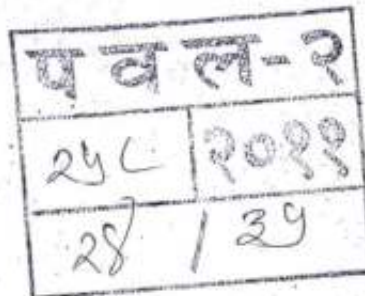 प व ल - २
२५८ २०११
२४ / ३५